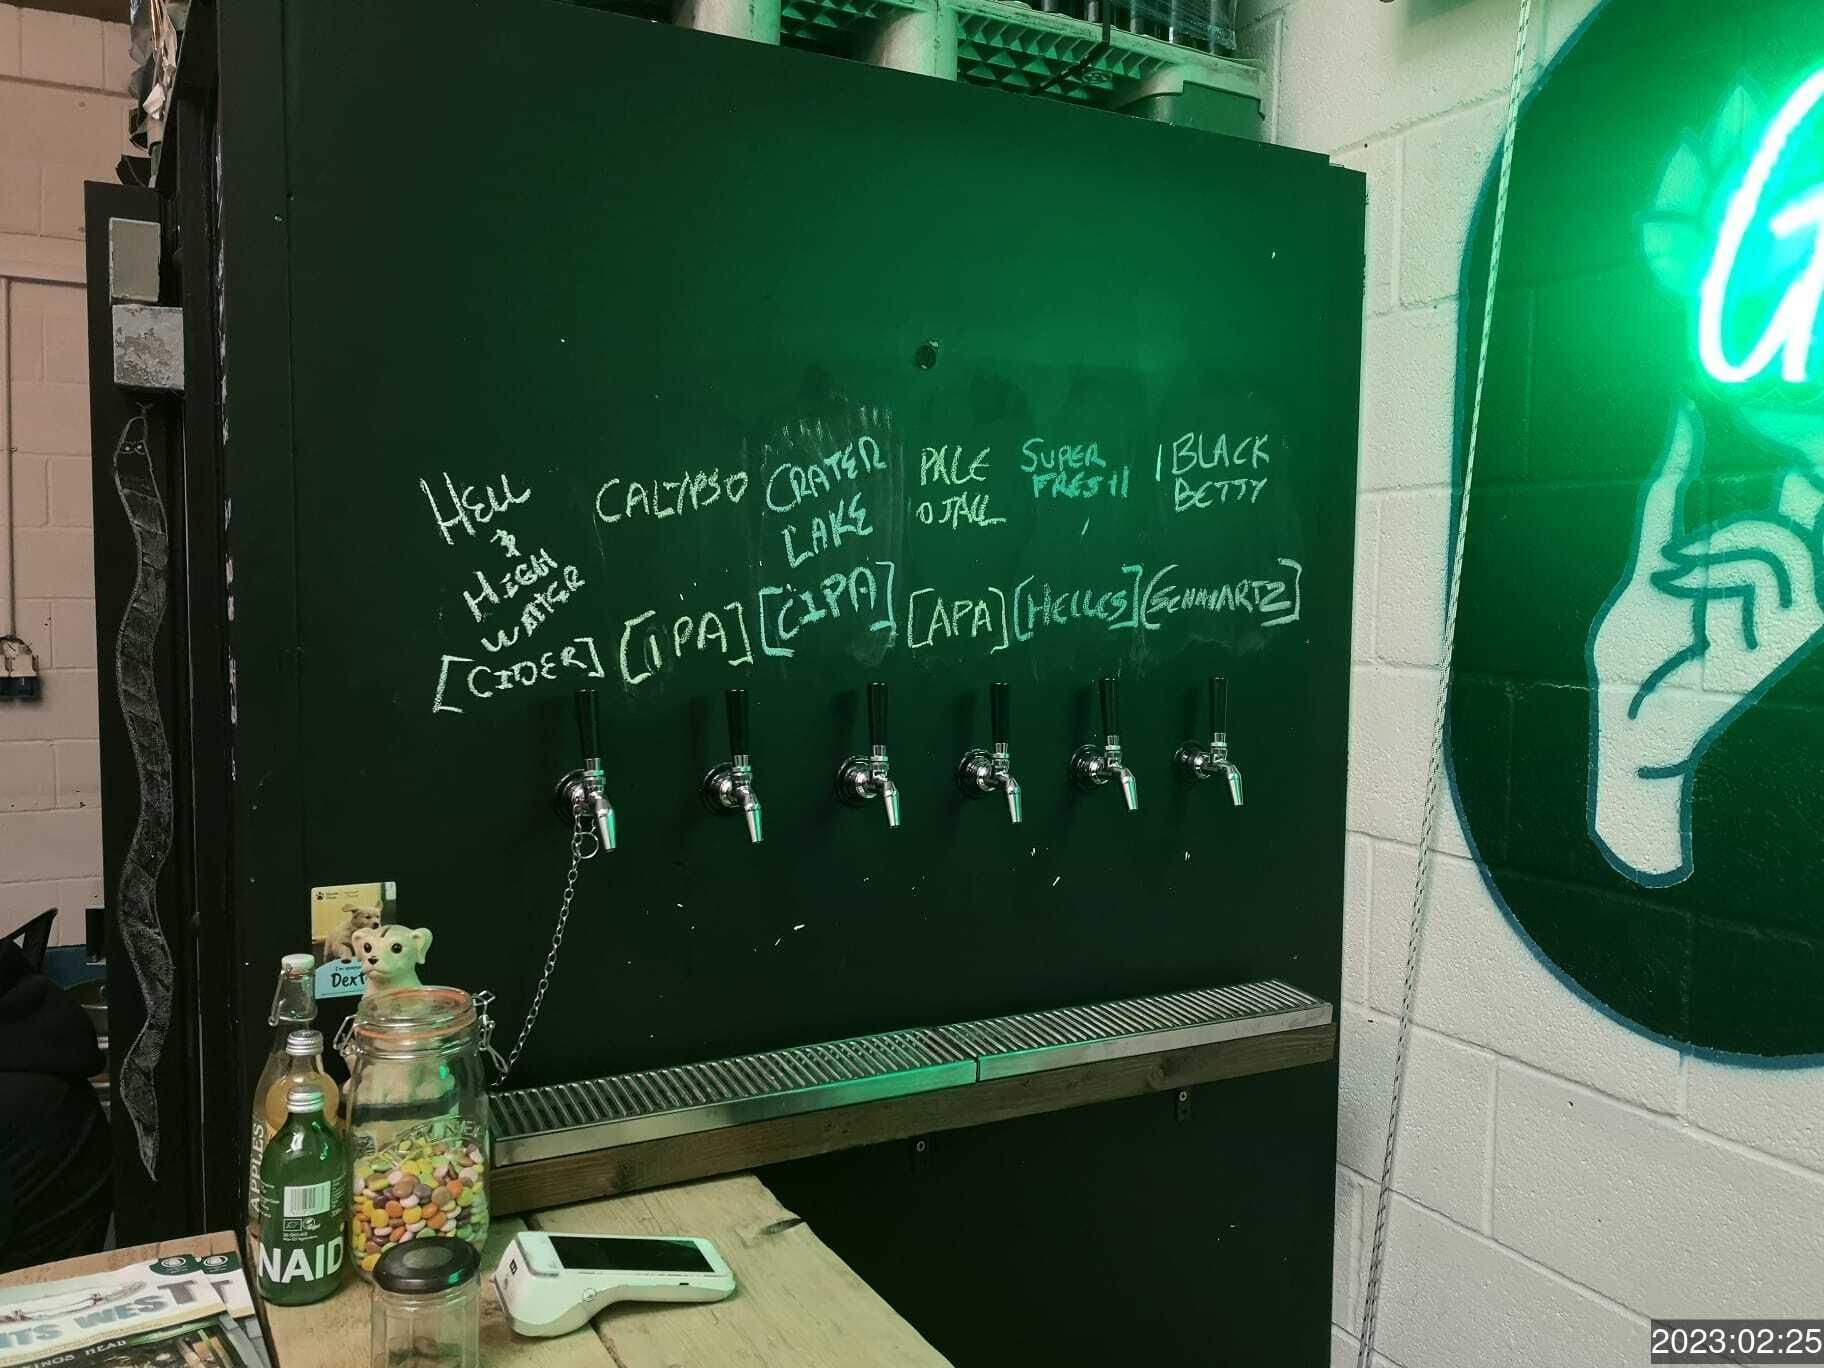 HELL
&
HIGH
WATER
[CIDER]
CALYPSO
[IPA]
CRATER
LAKE
[CIPA]
PALE
[APA]
SUPER
FRESH
[HELLES]
BLACK
BETTY
[SCHWARTZ]
G
Dext
APPLES
NAID
NTS WEST
HEAD
2023:02:25